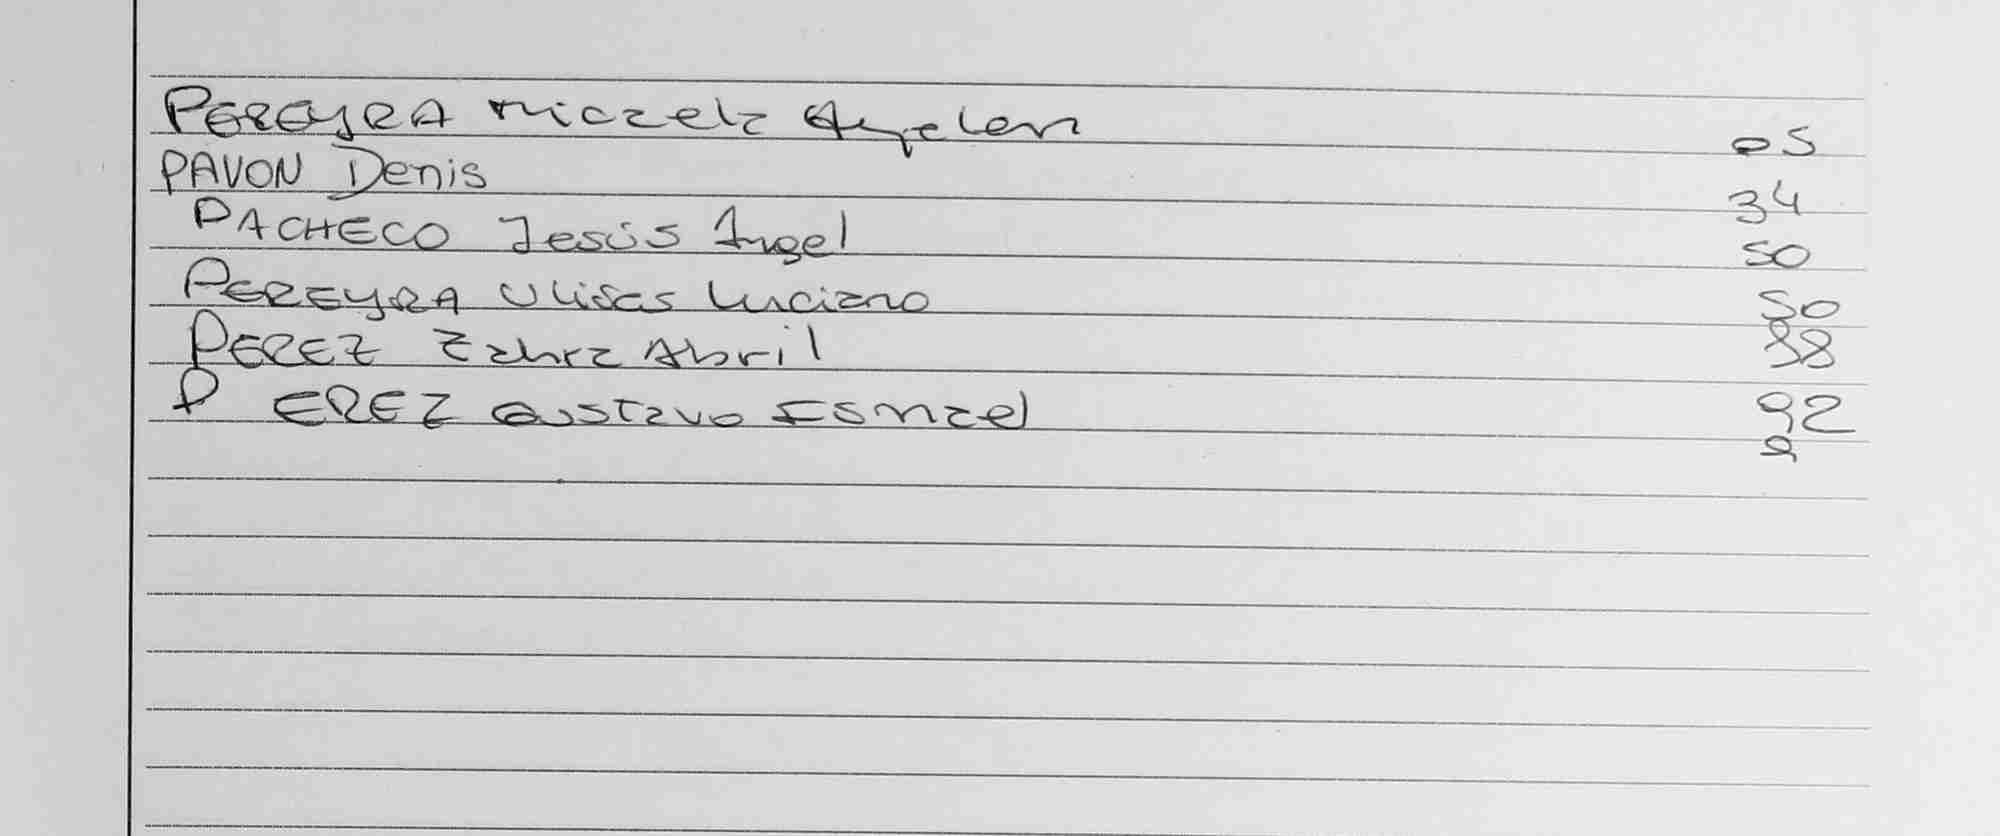 PEREYRA Micaela Ayelen 05
PAVON Denis 34
PACHECO Jesús Angel 50
PEREYRA Ulises Luciano 50
PEREZ Zahra Abril
PEREZ Gustavo Ismael 92